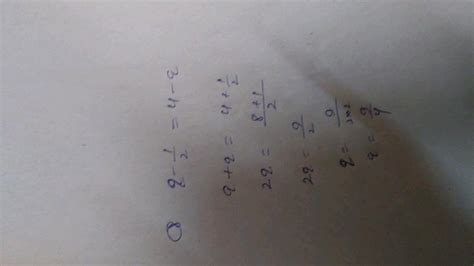 8) q - 1/2 = 4 - q
q + q = 4 + 1/2
2q = (8+1)/2
2q = 9/2
q = 9/(2×2)
q = 9/4